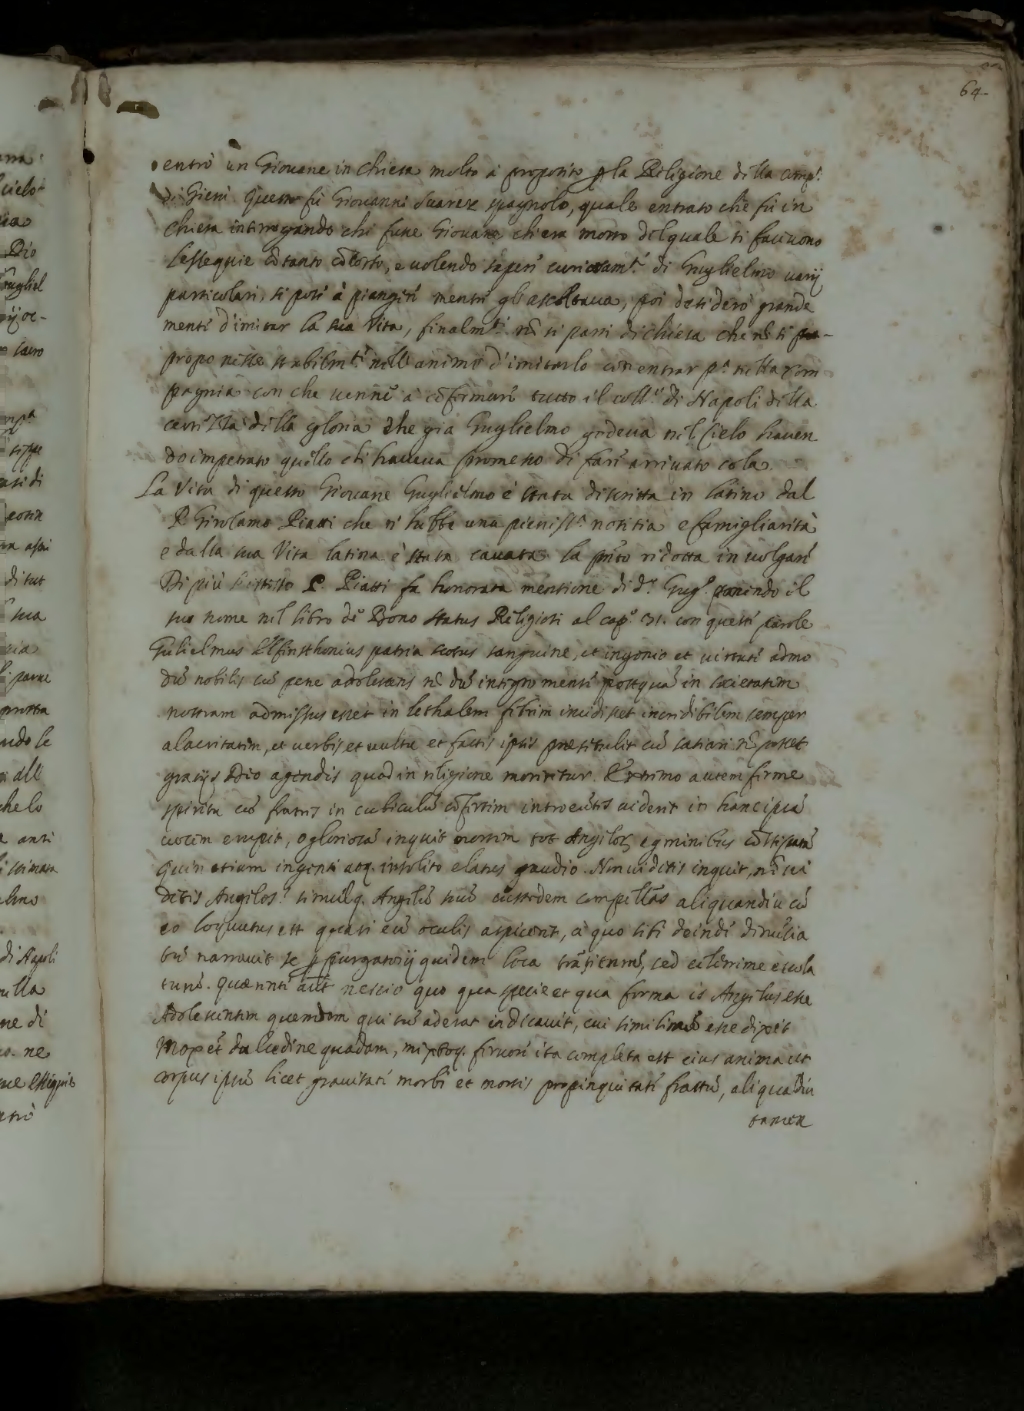 64
entrò un Giovane in chiesa molto à proposito p la Religione della Comp.ª
di Giesù questo fù Giovanni Suarez spagnolo, quale entrato che fù in
chiesa interrogando chi fusse Giovane che era morto del quale si facevono
l'essequie cõ tanto cõcorso, e volendo sapere curiosam.te di Guglielmo varij
particolari, si pose à piangere mentre gli ascoltava, poi desiderò grande
mente d'imitar la sua Vita, finalm.te nõ si partì di chiesa che nõ si
proponesse stabilm.te nell animo d'imitarlo con entrar p.ª nella com
pagnia con che venne à cõfirmare tutto il coll.º di Napoli della
certezza della gloria che già Guglielmo godeva nel Cielo haven
do impetrato quello che haveva promesso di fare arrivato colà.
La Vita di questo Giovane Guglielmo è stata descritta in latino dal
P. Girolamo Piatti che n' hebbe una pieniss.ª notitia e famigliarità
e dalla sua Vita latina è stata cavata la ridotta in volgare
Di più l'istesso P. Piatti fa honorata mentione di d.º Gug.º ponendo il
suo nome nel libro de Bono Status Religiosi al cap.º 31. con queste parole
Gulielmus Elfinsthonius patria scotus sanguine, et ingenio et virtute admo
dũ nobilis cũ pene adolescens nõ dũ integro mense postquã in societatem
nostram admissus esset in lethalem febrim incidisset incredibilem semper
alacritatem, et verbis et vultu et factis ipsis prætitulit cũ satiari nõ posset
gratijs Deo agendis quod in religione moreretur. Extremo autem ferme
spiritu cũ fratres in cubiculũ cõfertim introeũtes videret in hanc ipsã
vocem erupit, o gloriosã inquit tot Angelos egminibus
quin etiam ingenti atq. insolito elatus gaudio. Non videtis inquit, nõ vi
detis Angelos? simulq. Angelũ suũ custodem compellas aliquandiu cũ
eo locutus est quasi eũ oculis aspiceret, à quo sibi deinde
narravit se p purgatorij quidem loca trãsiturũ, sed celerrime
turũ. Quærente aũt nescio quo qua specie et qua forma is Angelus esse
Adolescentem quemdam qui tũc aderat indicavit, cui simillimũ esse dixit
Mox et dulcedine quadam, fervore ita completa est eius anima ut
corpus ipsũ licet gravitate morbi et mortis propinquitate fractũ, aliquãdiu
tamen